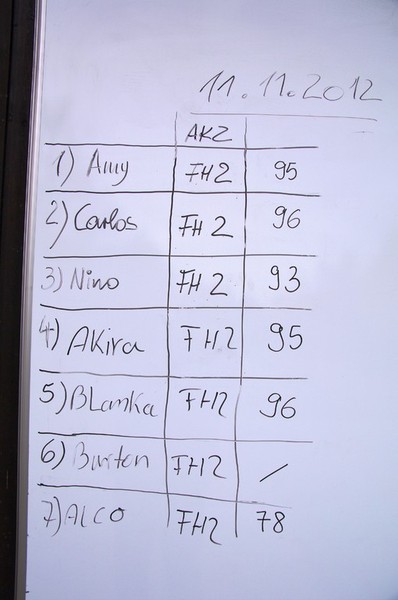 11.11.2012
AKZ
1) Amy FH2 95
2) Carlos FH2 96
3) Nino FH2 93
4) Akira FH2 95
5) BLanka FH2 96
6) Burton FH2 /
7) ALCO FH2 78